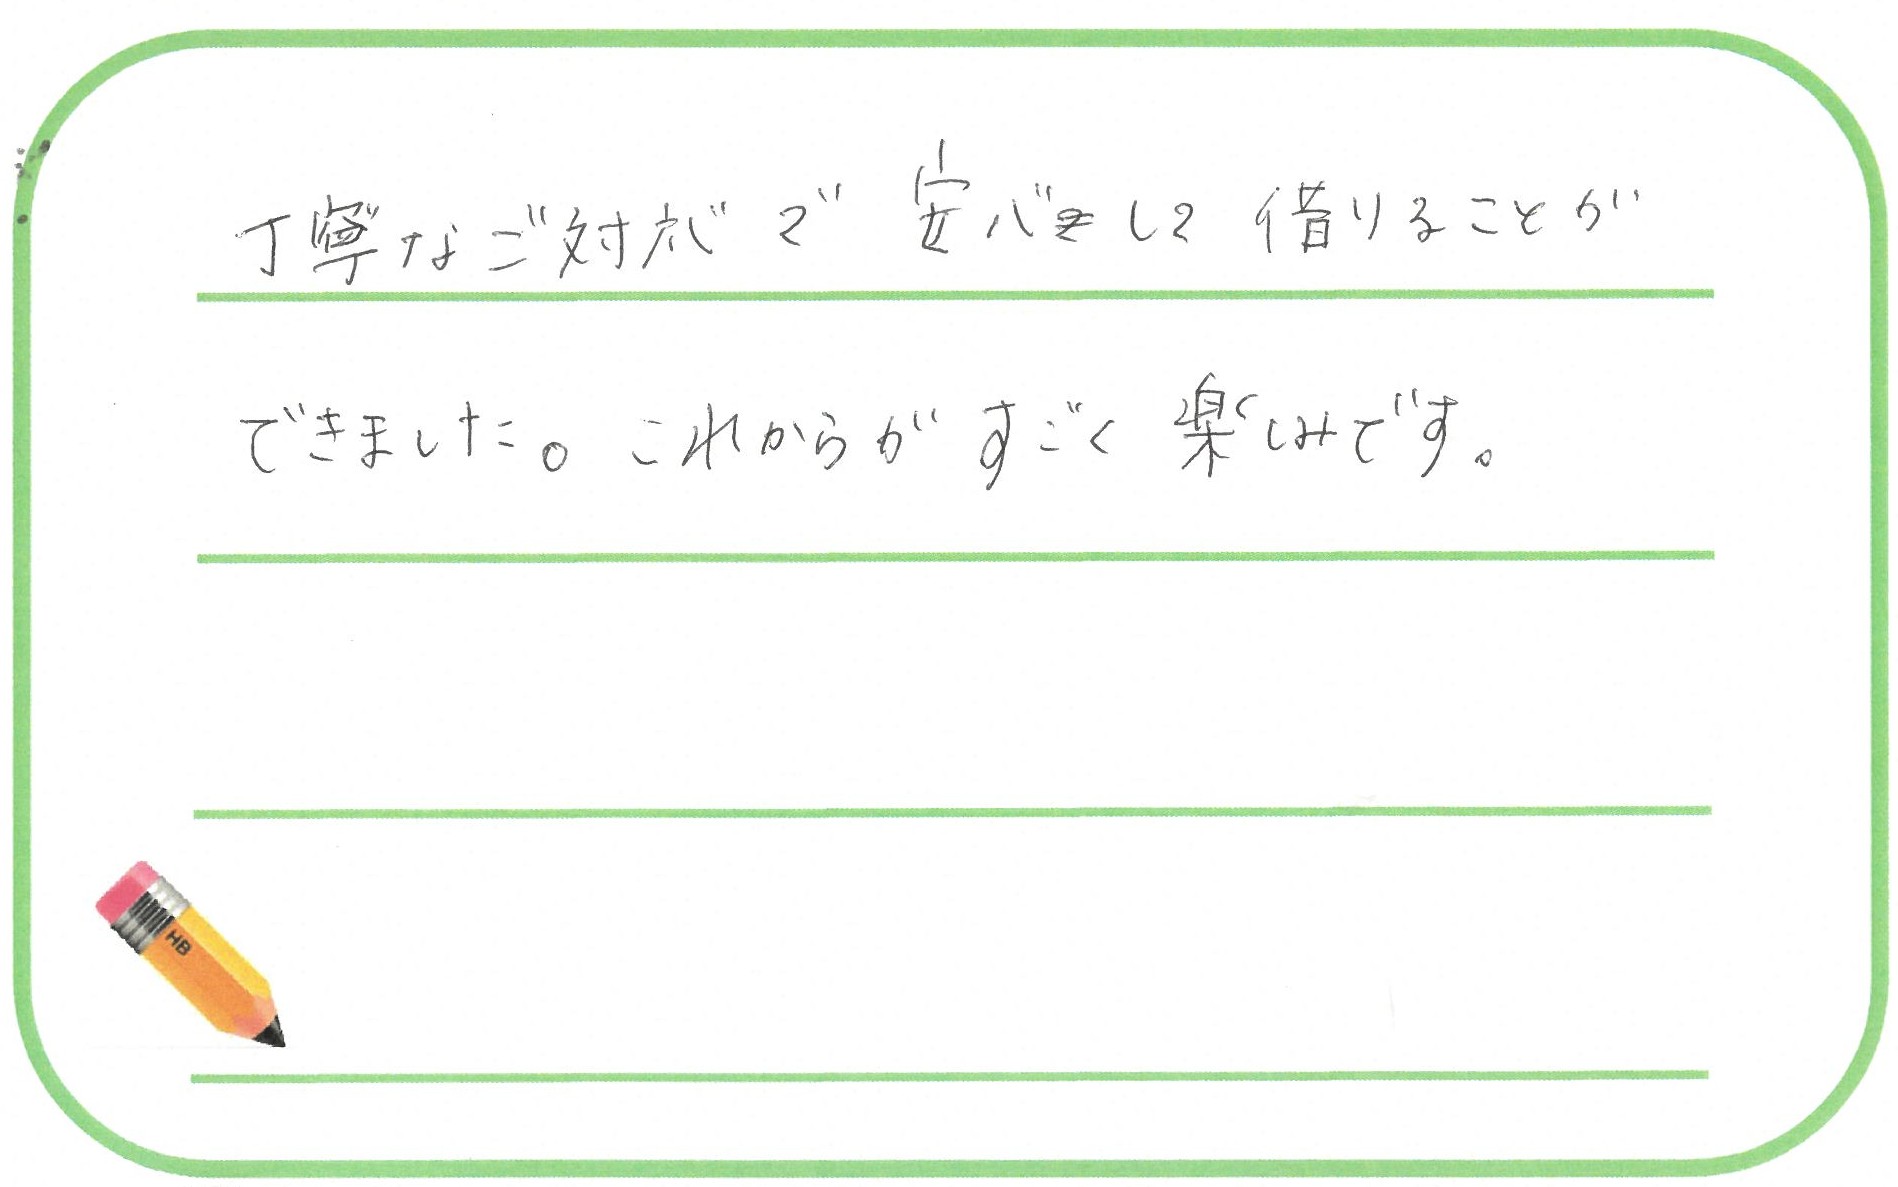 丁寧なご対応で 安心をして 借りることが
できました。これからが すごく 楽しみです。
HB